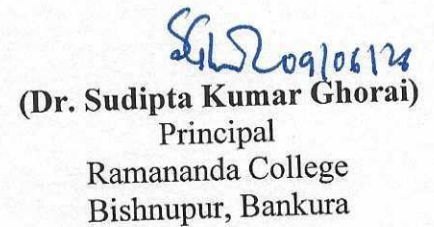 09/06/26
(Dr. Sudipta Kumar Ghorai)
Principal
Ramananda College
Bishnupur, Bankura